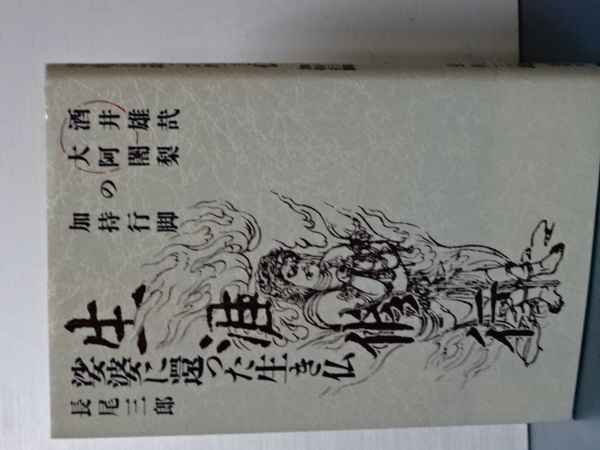 酒井雄哉
大阿闍梨
の
加持行脚
生涯修行
娑婆に還った生き仏
長尾三郎